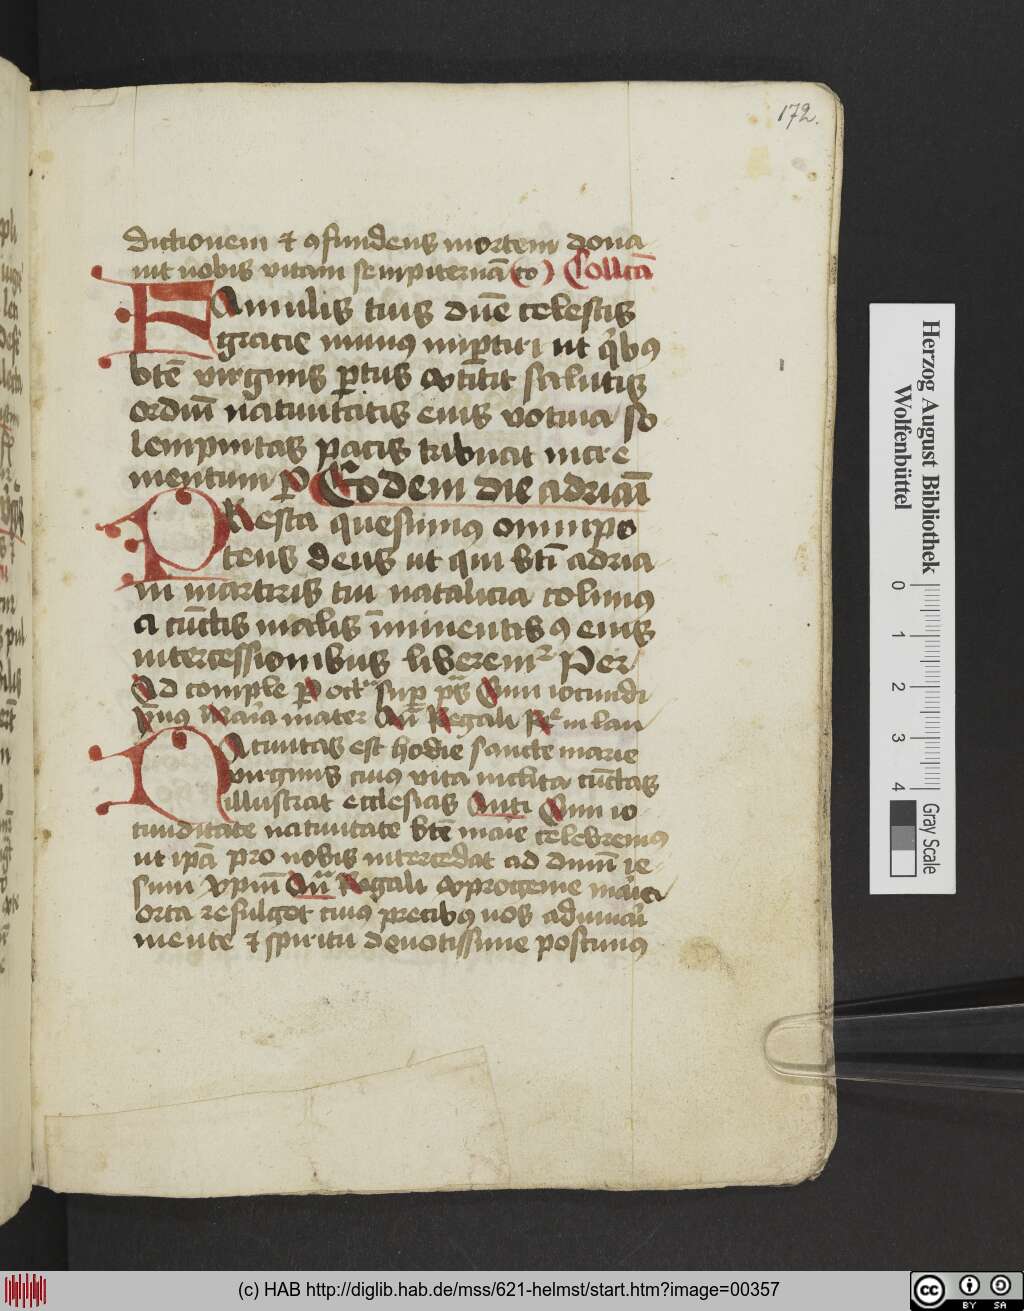 172.
dictionem & ꝯfundens mortem dona
uit nobis vitam sempiternā (to) Collcā
Famulis tuis dnē celestis
gracie munus impertiri ut qͥbus
btē virginis ꝑtus extitit salutis
ordiū natiuitatis eius votiua so
lempnitas pacis tribuat incre
mentum ꝑ Eodem die adriani
Presta quesumus omnipo
tens deus ut qui bti adria
ni martiris tui natalicia colimus
a cūctis malis īminentibꝯ eius
intercessionibus liberemur Per
Ad comple ps
hymnus maria mater Añ Regali
Natiuitas est hodie sancte marie
virginis cuius vita inclita cūctas
illustrat ecclesias Cum io
cunditate natiuitate btē marie celebremus
ut ipā pro nobis intercedat ad dnm ie
sum xpm Añ Regali ex progenie maria
orta refulget cuius precibus nos adiuuari
mente & spiritu deuotissime poscimus
Herzog August Bibliothek
Wolfenbüttel
0 1 2 3 4
Gray Scale
(c) HAB http://diglib.hab.de/mss/621-helmst/start.htm?image=00357
cc BY SA